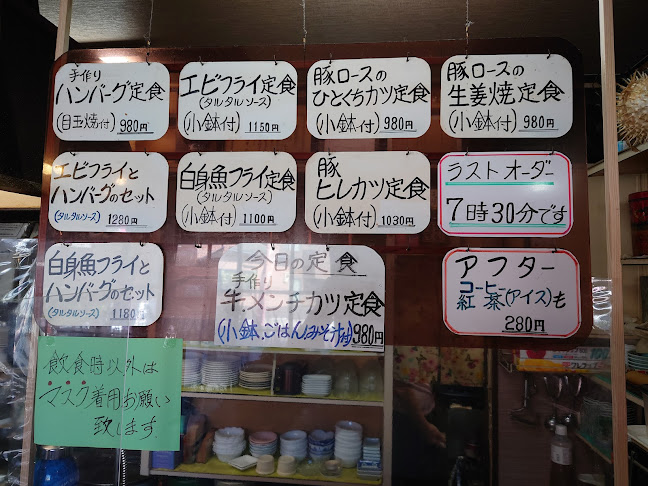 手作り
ハンバーグ定食
(目玉焼付) 980円
エビフライ定食
(タルタルソース)
(小鉢付) 1150円
豚ロースの
ひとくちカツ定食
(小鉢付) 980円
豚ロースの
生姜焼定食
(小鉢付) 980円
エビフライと
ハンバーグのセット
(タルタルソース) 1280円
白身魚フライ定食
(タルタルソース)
(小鉢付) 1100円
豚
ヒレカツ定食
(小鉢付) 1030円
ラストオーダー
7時30分です
白身魚フライと
ハンバーグのセット
(タルタルソース) 1180円
今日の定食
手作り
牛メンチカツ定食
(小鉢、ごはんみそ汁付) 980円
アフター
コーヒー
紅茶(アイス)も
280円
飲食時以外は
マスク着用お願い
致します